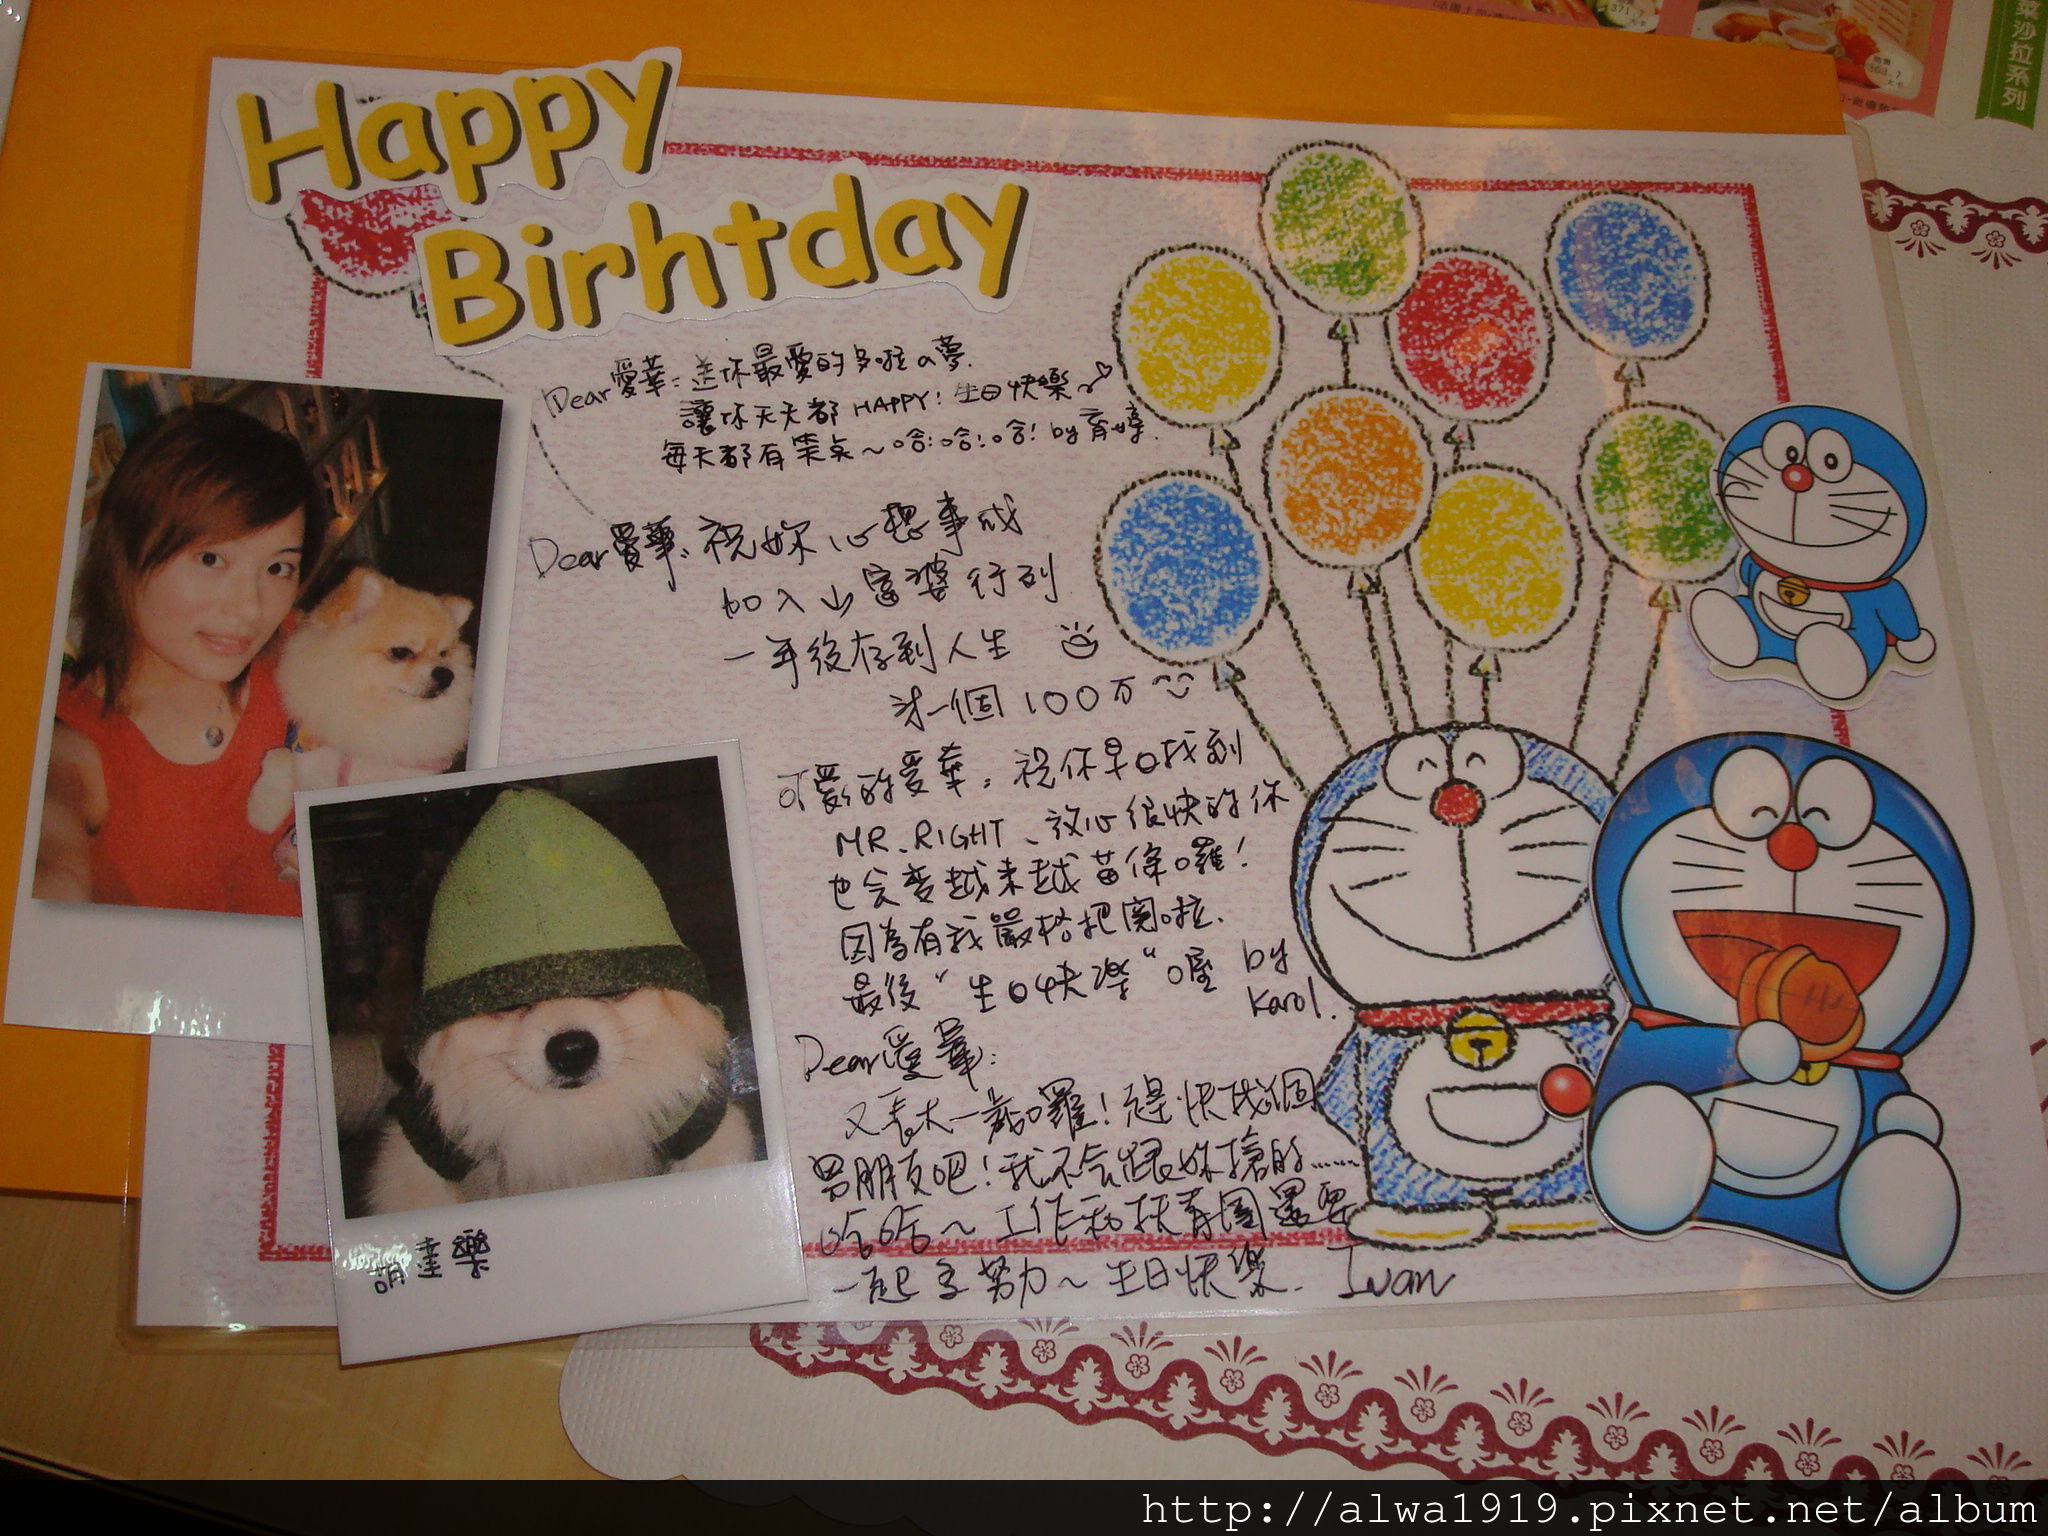 Happy
Birhtday
Dear愛華：送你最愛的多啦a夢.
讓你天天都 HAPPY！生日快樂～
每天都有笑桌～哈！哈！哈！by 育婷.
Dear愛華：祝妳心想事成
加入山富婆行列
一年後存到人生
第一個100万
可愛的愛華：祝你早日找到
MR.RIGHT、放心很快的你
也会變越來越苗條囉！
因為有我嚴格把關啦.
最後"生日快樂"喔 by
Karol.
Dear愛華：
又長大一歲囉！趕快找個
男朋友吧！我不会跟妳搶的......
哈哈～工作和扶青團還要
一起多努力～生日快樂. Ivan
萌達樂
菜沙拉系列
371.7
大卡
熱量
大卡
http://alwa1919.pixnet.net/album